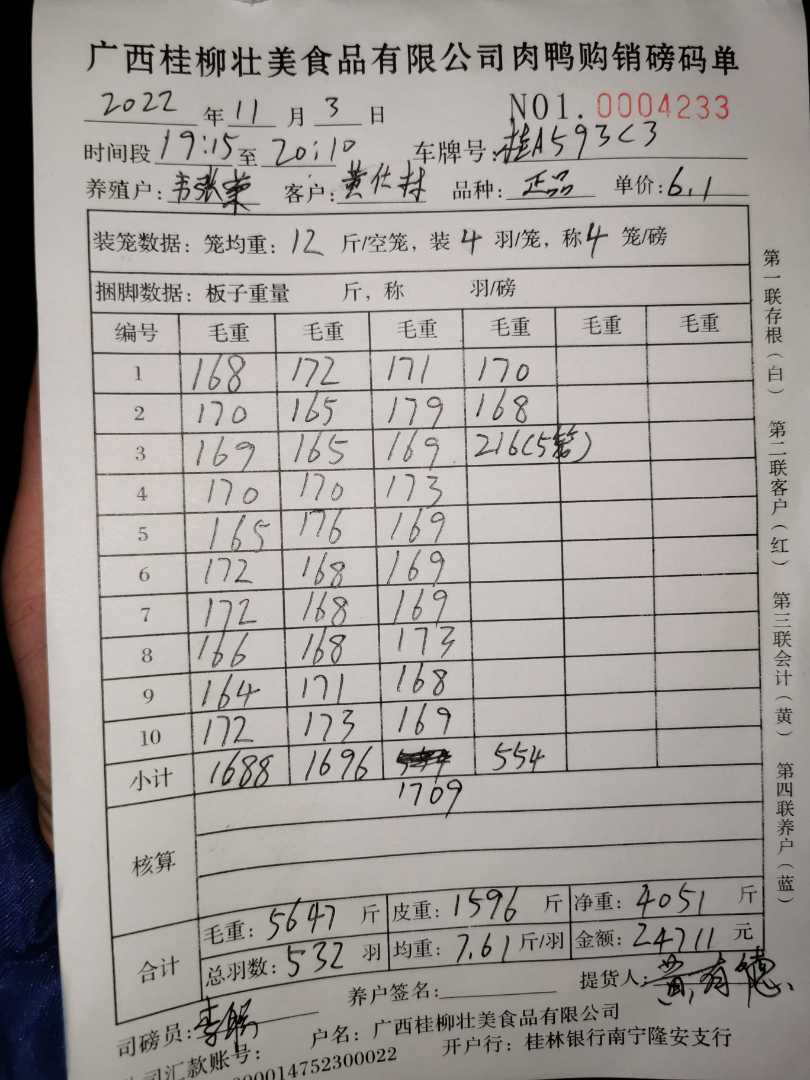 广西桂柳壮美食品有限公司肉鸭购销磅码单
2022 年 11 月 3 日 NO1. 0004233
时间段 19:15 至 20:10 车牌号: 桂A593C3
养殖户: 韦张荣 客户: 黄仕材 品种: 正品 单价: 6.1
装笼数据: 笼均重: 12 斤/空笼, 装 4 羽/笼, 称 4 笼/磅
捆脚数据: 板子重量 斤, 称 羽/磅
编号 毛重 毛重 毛重 毛重 毛重 毛重
1 168 172 171 170
2 170 165 179 168
3 169 165 169 216(5笼)
4 170 170 173
5 165 176 169
6 172 168 169
7 172 168 169
8 166 168 173
9 164 171 168
10 172 173 169
小计 1688 1696 554
1709
核算
合计
毛重: 5647 斤 皮重: 1596 斤 净重: 4051 斤
总羽数: 532 羽 均重: 7.61 斤/羽 金额: 24711 元
司磅员: 养户签名: 提货人: 黄有德
户名: 广西桂柳壮美食品有限公司
司汇款账号: 000014752300022 开户行: 桂林银行南宁隆安支行
第一联存根(白) 第二联客户(红) 第三联会计(黄) 第四联养户(蓝)